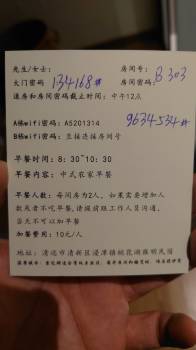 先生/女士:
房间号: B303
大门密码 134168#
房间密码: 9634534#
退房和房间密码截止时间: 中午12点
A栋wifi密码: A5201314
B栋wifi密码: 直接连接房间号
早餐时间: 8: 30~10: 30
早餐内容: 中式农家早餐
早餐人数: 每间房为2人, 如果需要增加人
数或者不吃早餐, 请提前跟工作人员沟通,
当天不可以加早餐
加餐费用: 10元/人
地址: 清远市清新区浸潭镇桃花湖雍明民宿